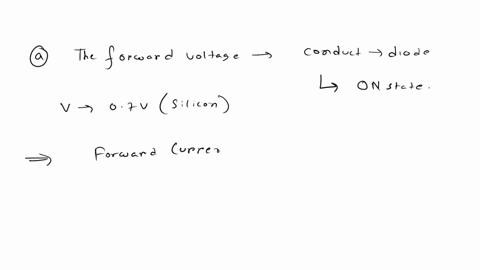 ⓐ The forward voltage → conduct → diode
↳ ON state.
V → 0.7V (Silicon)
⇒ Forward Curren